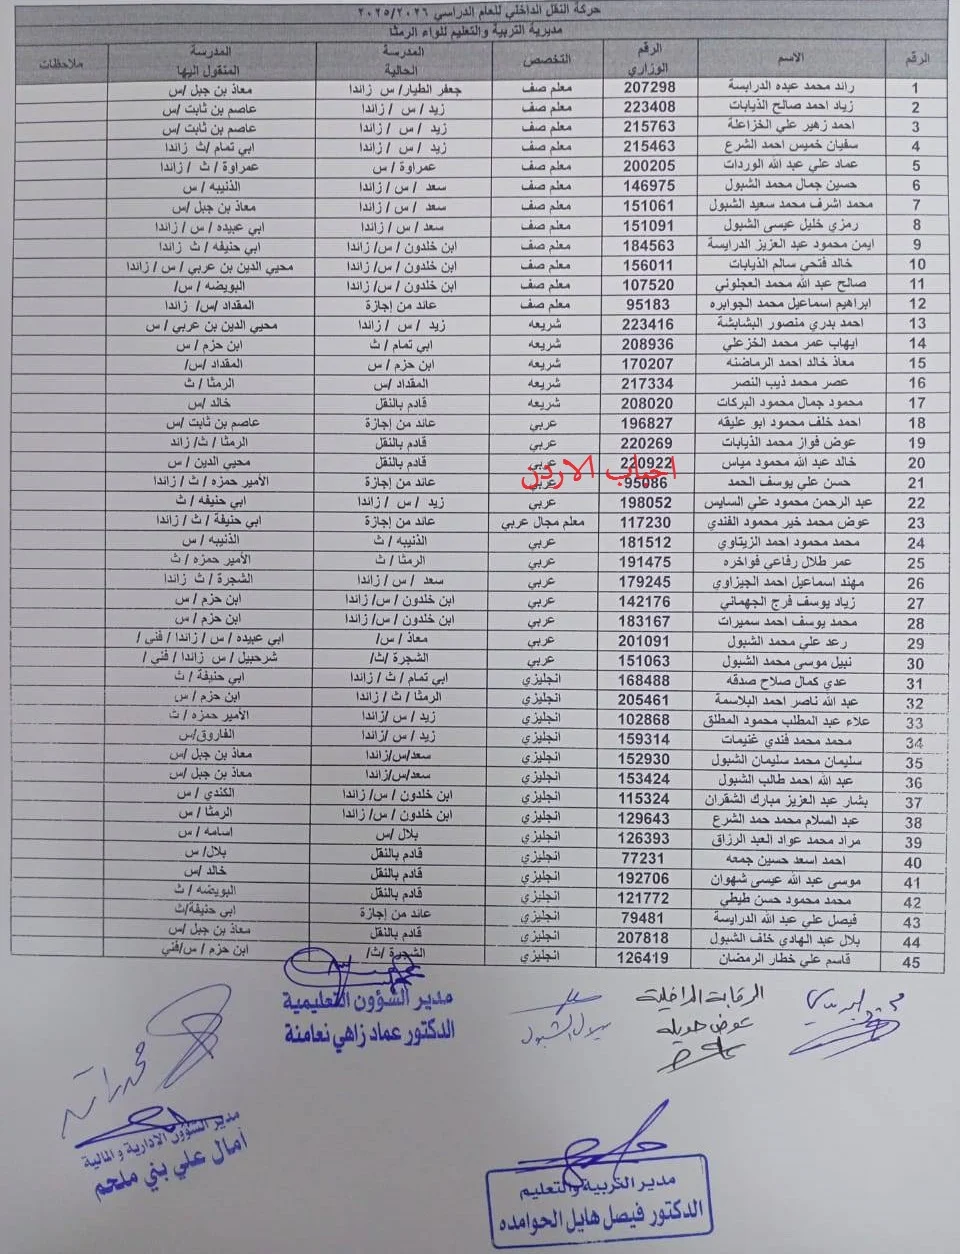 حركة النقل الداخلي للعام الدراسي ٢٠٢٥/٢٠٢٦
مديرية التربية والتعليم للواء الرمثا
الرقم الاسم الرقم الوزاري التخصص المدرسة الحالية المدرسة المنقول اليها ملاحظات
1 رائد محمد عبده الدرابسة 207298 معلم صف جعفر الطيار/ س زائدا معاذ بن جبل /س
2 زياد احمد صالح الذيابات 223408 معلم صف زيد / س / زائدا عاصم بن ثابت /س
3 احمد زهير علي الخزاعلة 215763 معلم صف زيد / س / زائدا عاصم بن ثابت /س
4 سفيان خميس احمد الشرع 215463 معلم صف زيد / س / زائدا ابي تمام /ث زائدا
5 عماد علي عبد الله الوردات 200205 معلم صف عمراوة / س عمراوة / ث / زائدا
6 حسين جمال محمد الشبول 146975 معلم صف سعد / س / زائدا الذنيبه / س
7 محمد اشرف محمد سعيد الشبول 151061 معلم صف سعد / س / زائدا معاذ بن جبل /س
8 رمزي خليل عيسى الشبول 151091 معلم صف سعد / س / زائدا ابي عبيده / س / زائدا
9 ايمن محمود عبد العزيز الدرابسة 184563 معلم صف ابن خلدون / س/ زائدا ابي حنيفه / ث زائدا
10 خالد فتحي سالم الذيابات 156011 معلم صف ابن خلدون / س/ زائدا محيي الدين بن عربي / س / زائدا
11 صالح عبد الله محمد العجلوني 107520 معلم صف ابن خلدون / س/ زائدا البويضه / س/
12 ابراهيم اسماعيل محمد الجوابره 95183 معلم صف عائد من إجازة المقداد /س/ زائدا
13 احمد بدري منصور البشابشة 223416 شريعه زيد / س / زائدا محيي الدين بن عربي / س
14 ايهاب عمر محمد الخزعلي 208936 شريعه ابي تمام / ث ابن حزم / س
15 معاذ خالد احمد الرماضنه 170207 شريعه ابن حزم / س المقداد /س/
16 عصر محمد ذيب النصر 217334 شريعه المقداد /س الرمثا / ث
17 محمود جمال محمود البركات 208020 شريعه قادم بالنقل خالد /س
18 احمد خلف محمود ابو عليقه 196827 عربي عائد من إجازة عاصم بن ثابت /س
19 عوض فواز محمد الذيابات 220269 عربي قادم بالنقل الرمثا / ث/ زائد
20 خالد عبد الله محمود مياس 220922 عربي قادم بالنقل محيي الدين / س
احباب الاردن
21 حسن علي يوسف الحمد 95086 عربي عائد من إجازة الأمير حمزه / ث / زائدا
22 عبد الرحمن محمود علي السايس 198052 عربي زيد / س / زائدا ابي حنيفه / ث
23 عوض محمد خير محمود الفندي 117230 معلم مجال عربي عائد من إجازة ابي حنيفة / ث / زائدا
24 محمد محمود احمد الزيتاوي 181512 عربي الذنيبه / ث الذنيبه / س
25 عمر طلال رفاعي فواخره 191475 عربي الرمثا / ث الأمير حمزه / ث
26 مهند اسماعيل احمد الجيزاوي 179245 عربي سعد / س / زائدا الشجرة / ث زائدا
27 زياد يوسف فرج الجهماني 142176 عربي ابن خلدون / س/ زائدا ابن حزم / س
28 محمد يوسف احمد سميرات 183167 عربي ابن خلدون / س/ زائدا ابن حزم / س
29 رعد علي محمد الشبول 201091 عربي معاذ / س/ ابي عبيده / س / زائدا / فني /
30 نبيل موسى محمد الشبول 151063 عربي الشجرة /ث/ شرحبيل / س زائدا / فني /
31 عدي كمال صلاح صدقه 168488 انجليزي ابي تمام / ث / زائدا ابي حنيفة / ث
32 عبد الله ناصر احمد البلاسمة 205461 انجليزي الرمثا / ث / زائدا ابن حزم / س
33 علاء عبد المطلب محمود المطلق 102868 انجليزي زيد / س /زائدا الأمير حمزه / ث
34 محمد محمد فندي غنيمات 159314 انجليزي زيد / س /زائدا الفاروق/س
35 سليمان محمد سليمان الشبول 152930 انجليزي سعد/س/زائدا معاذ بن جبل /س
36 عبد الله احمد طالب الشبول 153424 انجليزي سعد/س/زائدا معاذ بن جبل /س
37 بشار عبد العزيز مبارك الشقران 115324 انجليزي ابن خلدون / س/ زائدا الكندي / س
38 عبد السلام محمد حمد الشرع 129643 انجليزي ابن خلدون / س/ زائدا الرمثا / س
39 مراد محمد عواد العبد الرزاق 126393 انجليزي بلال /س اسامه / س
40 احمد اسعد حسين جمعه 77231 انجليزي قادم بالنقل بلال/ س
41 موسى عبد الله عيسى شهوان 192706 انجليزي قادم بالنقل خالد /س
42 محمد محمود حسن طيطي 121772 انجليزي قادم بالنقل البويضه / ث
43 فيصل علي عبد الله الدرابسة 79481 انجليزي عائد من إجازة ابي حنيفة/ث
44 بلال عبد الهادي خلف الشبول 207818 انجليزي قادم بالنقل معاذ بن جبل /س
45 قاسم علي خطار الرمضان 126419 انجليزي الشجرة /ث/ ابن حزم / س/فني
الرقابة الداخلية
عوض
بلال الشبول
مدير الشؤون التعليمية
الدكتور عماد زاهي نعامنة
مدير الشؤون الادارية والمالية
أمال علي بني ملحم
مدير التربية والتعليم
الدكتور فيصل هايل الحوامده